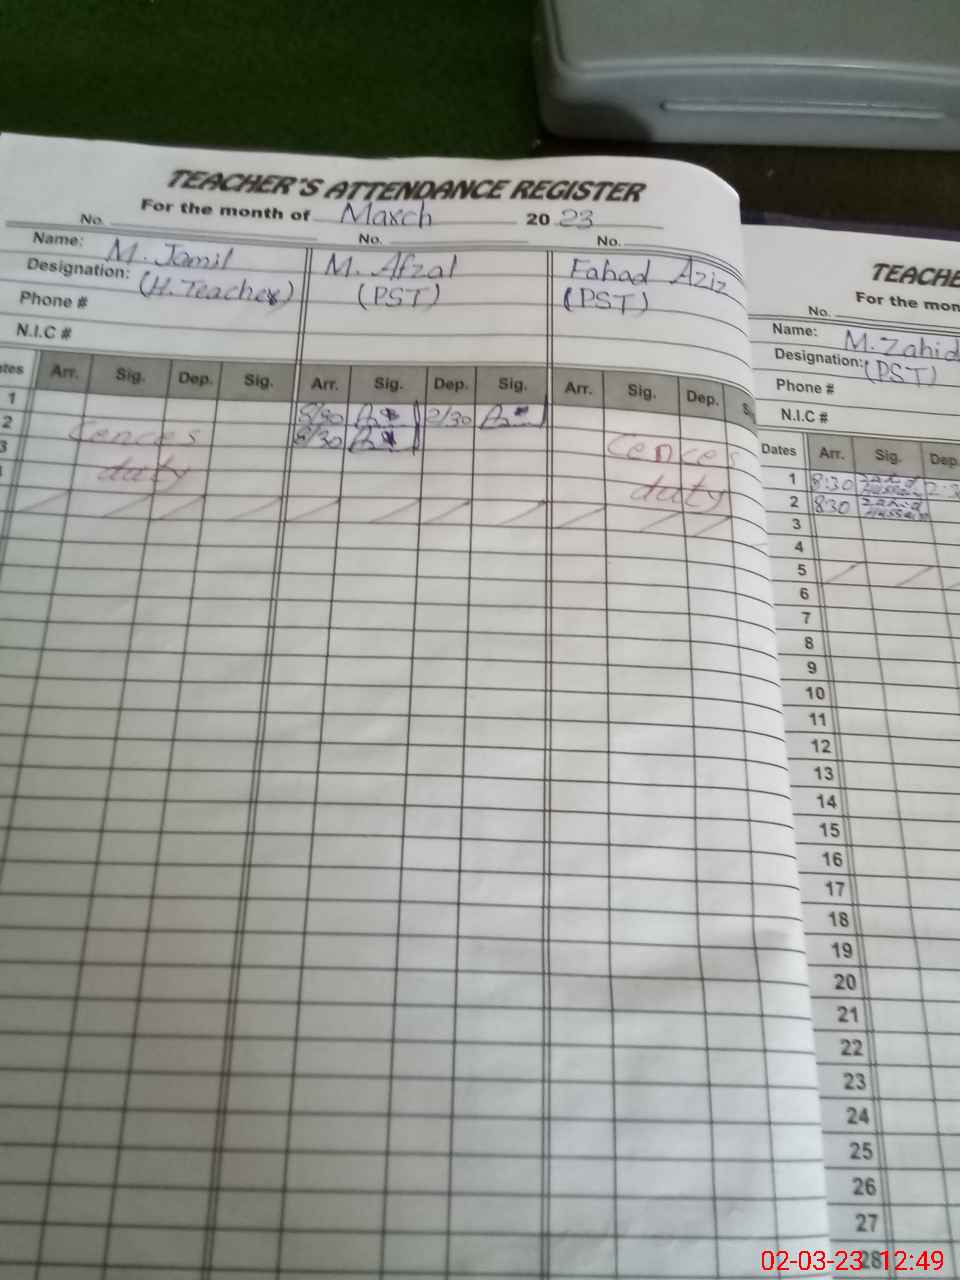 TEACHER'S ATTENDANCE REGISTER
For the month of March 20 23
No. No. No.
Name: M. Jamil M. Afzal Fahad Aziz
Designation: (H. Teacher) (PST) (PST)
Phone #
N.I.C #
Arr. Sig. Dep. Sig. Arr. Sig. Dep. Sig. Arr. Sig. Dep.
1 8/30 2/30
2 Cences 8/30 Cences
3 duty duty
TEACHE
For the mon
No.
Name: M. Zahid
Designation: (PST)
Phone #
N.I.C #
Dates Arr. Sig. Dep.
1 8:30 Zahid Hussain
2 830 Zahid Hussain
3
4
5
6
7
8
9
10
11
12
13
14
15
16
17
18
19
20
21
22
23
24
25
26
27
28
02-03-23 12:49